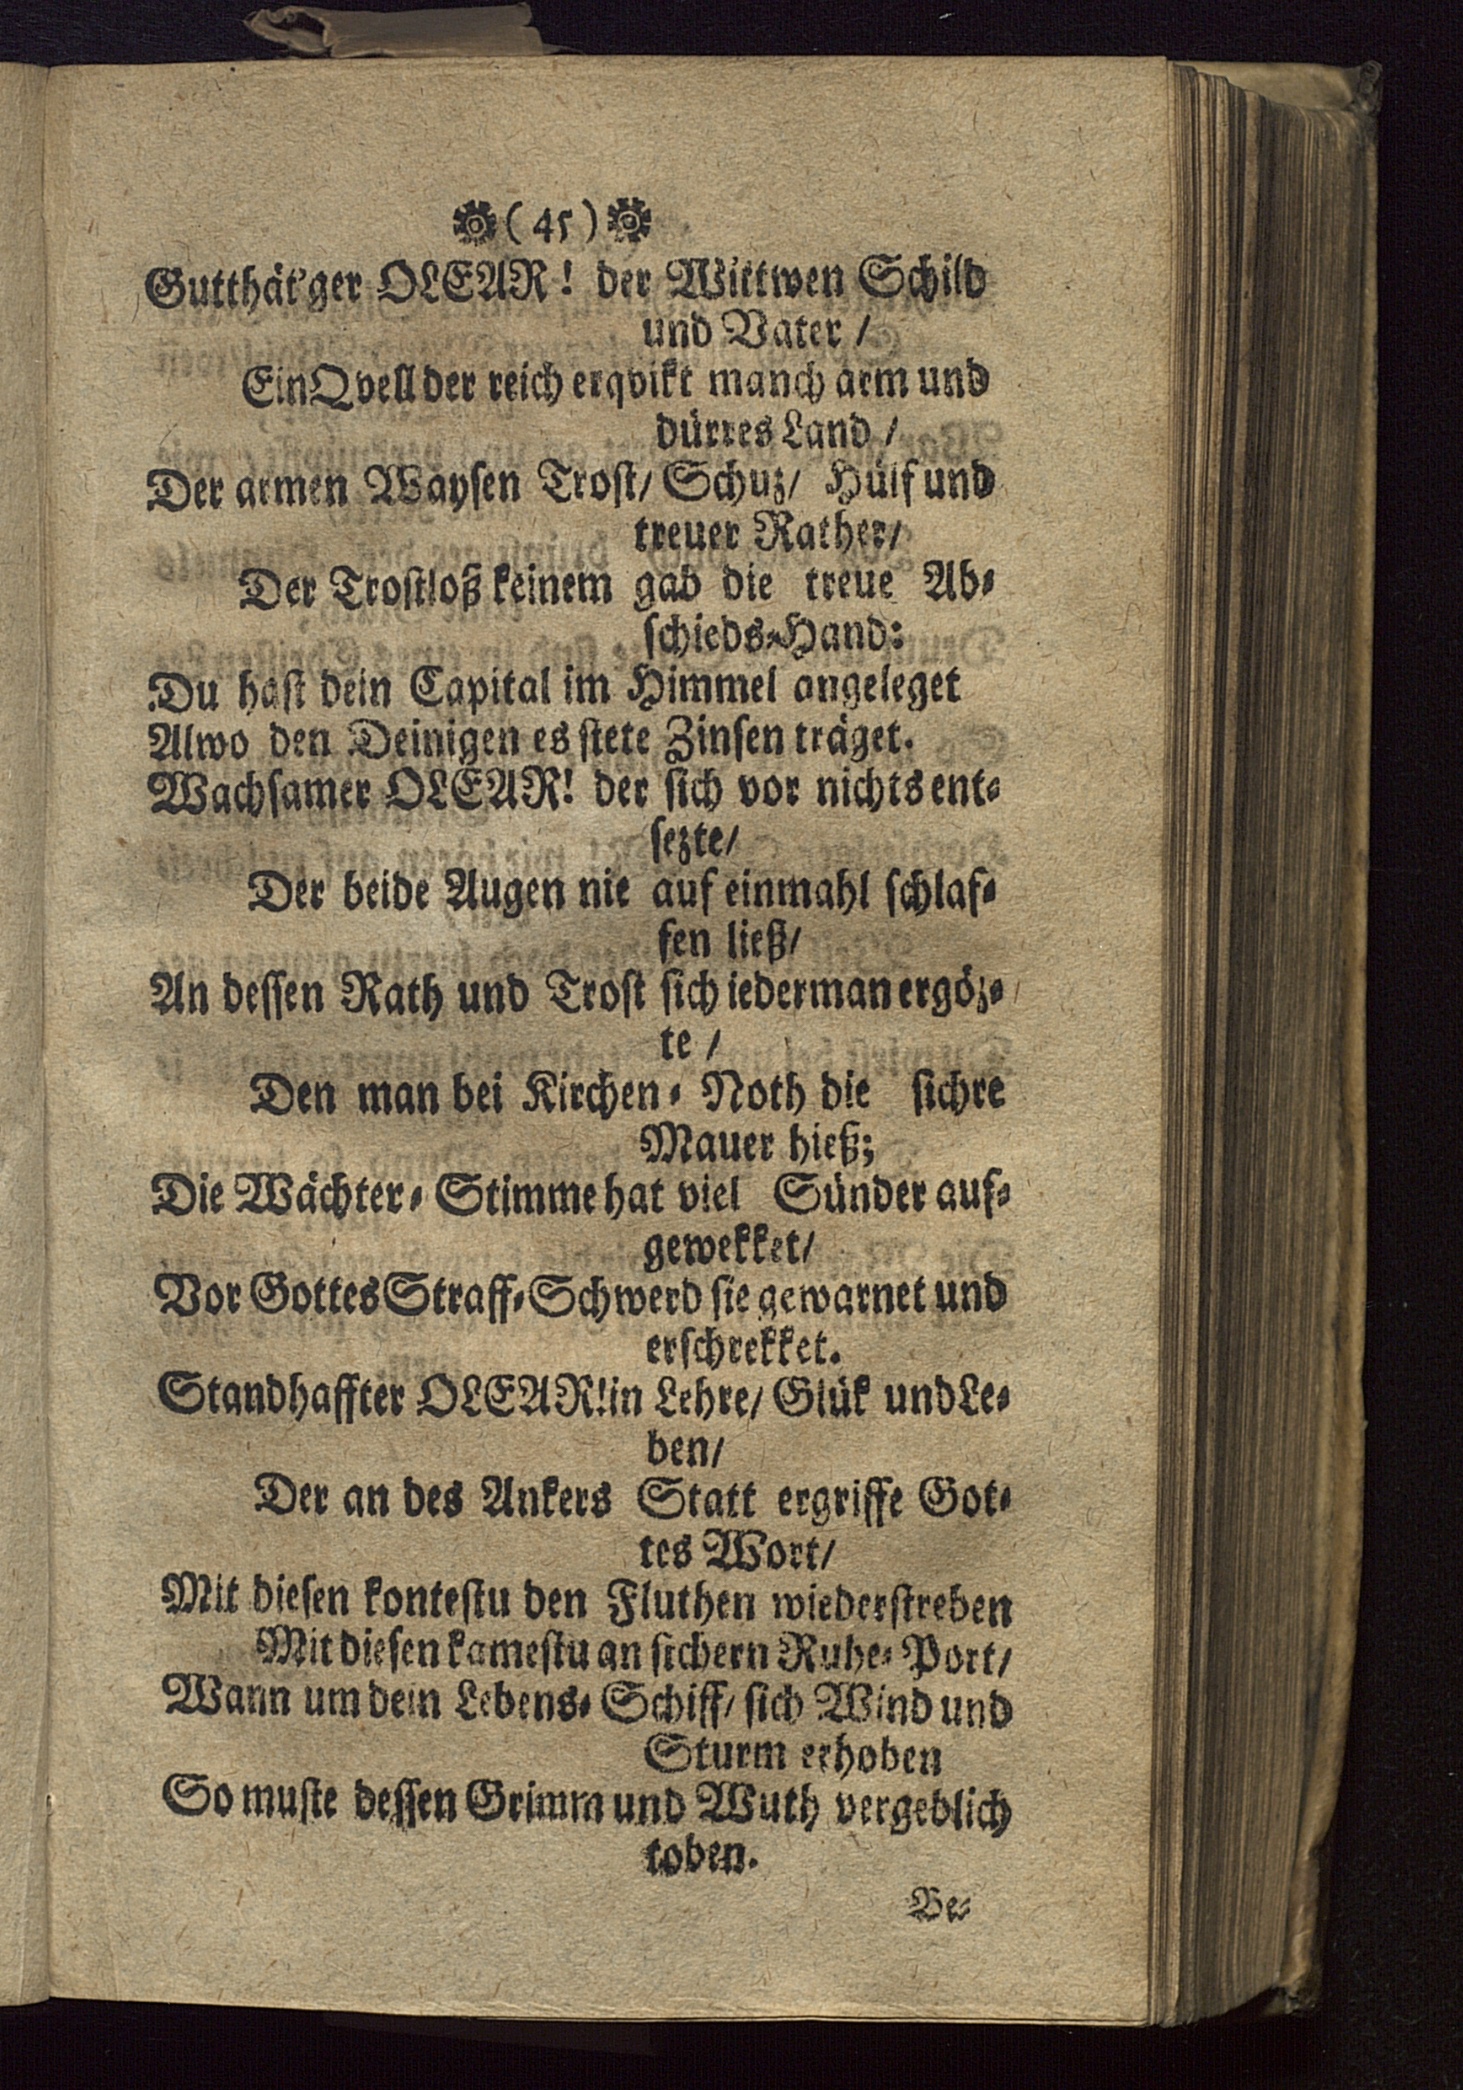 ( 45 )
Gutthät'ger OLEAR! der Wittwen Schild
und Vater /
Ein Qvell der reich erqvikt manch arm und
dürres Land /
Der armen Waysen Trost/ Schuz/ Hülf und
treuer Rather/
Der Trostloß keinem gab die treue Ab-
schieds-Hand:
Du hast dein Capital im Himmel angeleget
Alwo den Deinigen es stete Zinsen träget.
Wachsamer OLEAR! der sich vor nichts ent-
sezte/
Der beide Augen nie auf einmahl schlaf-
fen ließ/
An dessen Rath und Trost sich iederman ergöz-
te /
Den man bei Kirchen- Noth die sichre
Mauer hieß;
Die Wächter- Stimme hat viel Sünder auf-
gewekket/
Vor Gottes Straff-Schwerd sie gewarnet und
erschrekket.
Standhaffter OLEAR! in Lehre/ Glük und Le-
ben/
Der an des Ankers Statt ergriffe Got-
tes Wort/
Mit diesen kontestu den Fluthen wiederstreben
Mit diesen kamestu an sichern Ruhe- Port/
Wann um dein Lebens- Schiff/ sich Wind und
Sturm erhoben
So muste dessen Grimm und Wuth vergeblich
toben.
Be-